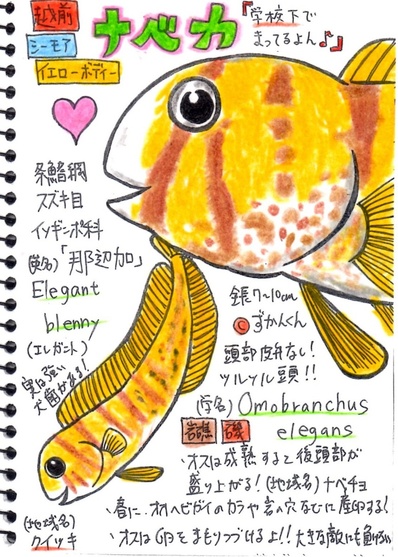 越前
シーモア
イエローボディー
ナベカ
『学校下で
まってるよん♪』
条鰭綱
スズキ目
イソギンポ科
(漢名)「那辺加」
Elegant
blenny
(エレガント)
実は強い
犬歯がある!
全長7〜10cm
©ずかんくん
頭部皮弁なし!
ツルツル頭!!
(学名) Omobranchus
elegans
岩礁 磯
・オスは成熟すると後頭部が
盛り上がる! (地域名)ナベチョ
・春に、オオヘビガイのカラや岩の穴などに産卵する!
(地域名)
クイツキ
・オスは卵をまもりつづけるよ!! 大きな敵にも負けない